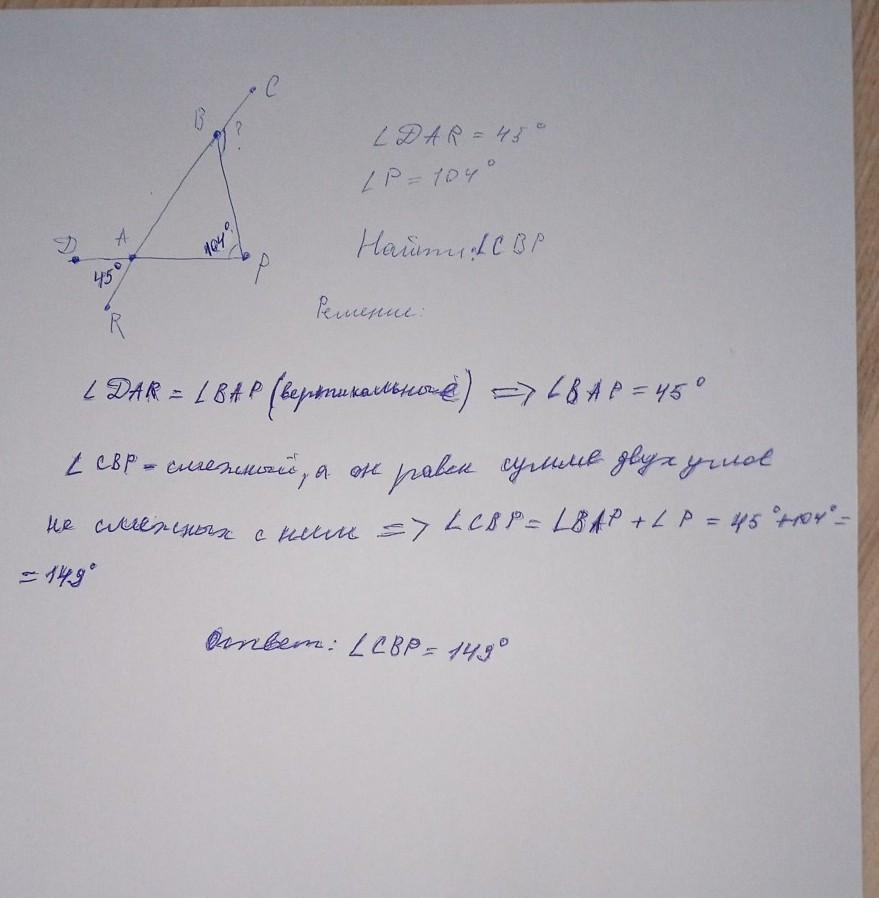 C
B
?
∠DAR = 45°
∠P = 104°
D
A
104°
P
45°
Найти: ∠CBP
R
Решение:
∠DAR = ∠BAP (вертикальные) => ∠BAP = 45°
∠CBP - смежный, а он равен сумме двух углов
не смежных с ним => ∠CBP = ∠BAP + ∠P = 45° + 104° =
= 149°
Ответ: ∠CBP = 149°